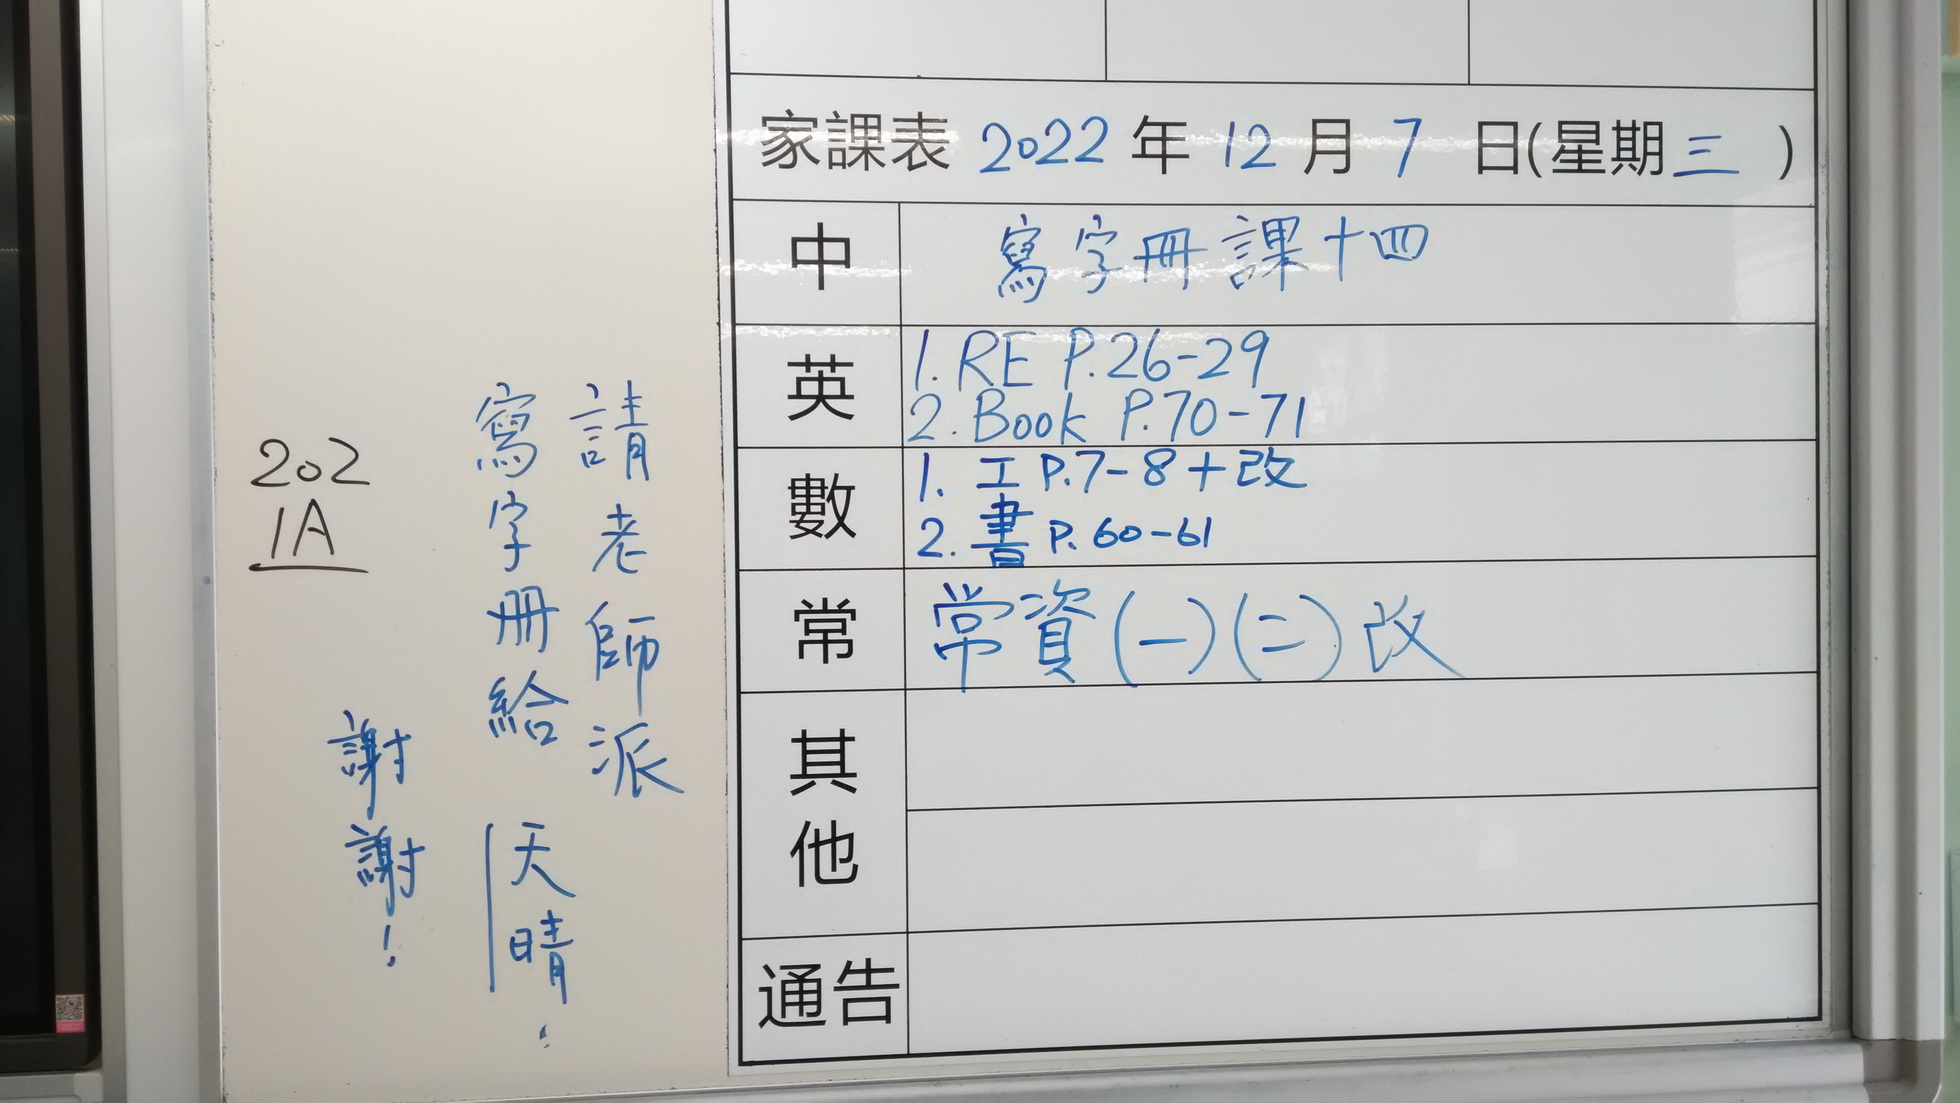 家課表 2022 年 12 月 7 日(星期三)
中 寫字冊 課十四
英 1. RE P.26-29
2. Book P.70-71
數 1. 工 P.7-8+改
2. 書 P.60-61
常 常資(一)(二)改
其他
通告
請老師派
寫字冊給天晴.
謝謝!
202
1A